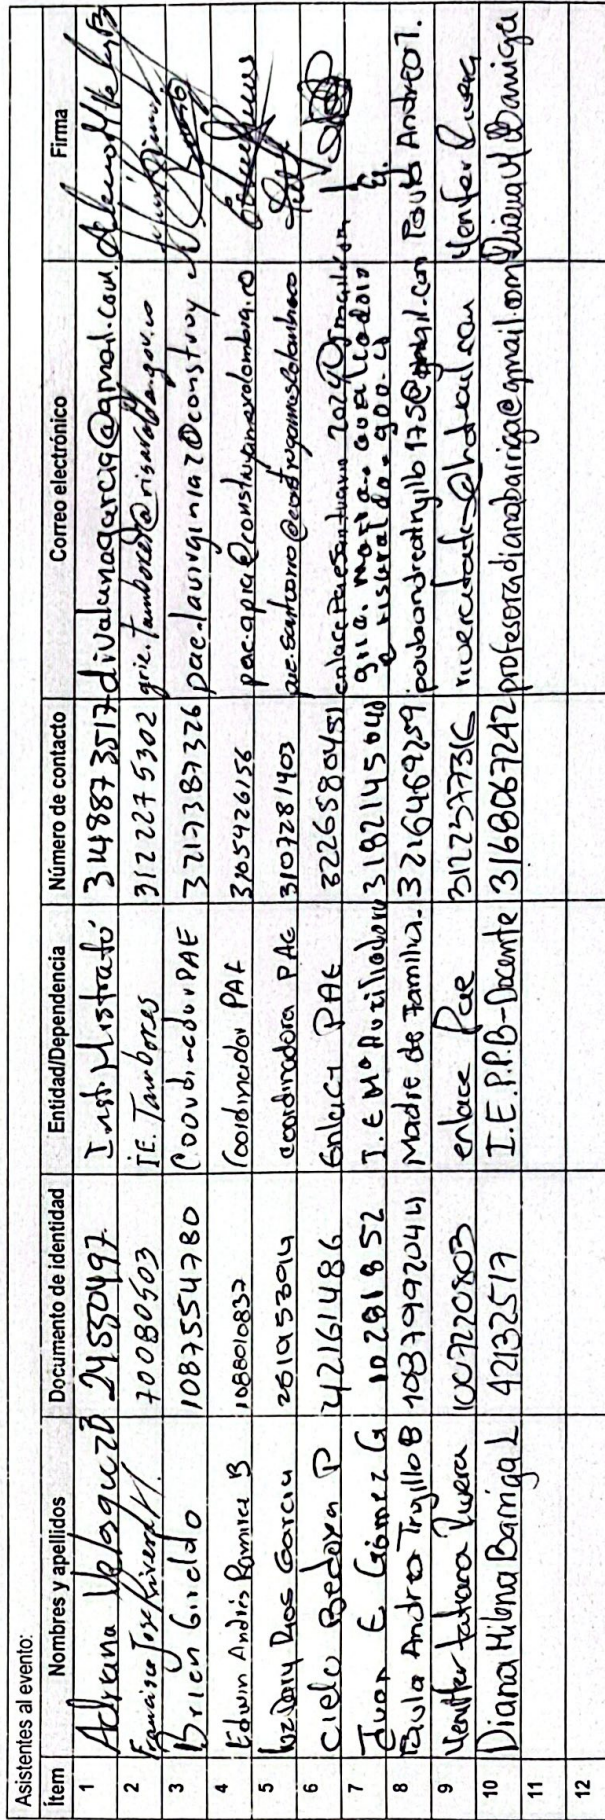 Asistentes al evento:
Ítem Nombres y apellidos Documento de identidad Entidad/Dependencia Número de contacto Correo electrónico Firma
1 Adriana Velasquez D 24550497 Inst. Mistrató 3148873517 divalunagarcia@gmail.com.
2 Francisco Jose Rivera H. 70080503 IE. Tambores 3122275302 grie.tambores@risaralda.gov.co
3 Brien Giraldo 1087554780 Coordinador PAE 3217387326
4 Edwin Andrés Ramirez B 1088010837 Coordinador PAE 3105426156
5 Luz Dary Rios Garcia coordinadora PAE 3107281403
6 Cielo Bedoya P 42161486 Enlace PAE 3226580451
7 Juan E Gómez G 10281852 I.E Mª Auxiliadora 3182145040 grie.maria.auxiliadora
@risaralda.gov.co
8 Paula Andrea Trujillo B 1087992044 Madre de Familia. 3216469259. paulaandreatrujillo175@gmail.com Paula Andrea T.
9 Yeniffer tatiana Rivera 1007220803 enlace Pae 3122577316 Yenifer Rivera
10 Diana Milena Barriga L 42132517 I.E.P.P.B-Docente 3168067242 profesoradianabarriga@gmail.com Diana M Barriga
11
12